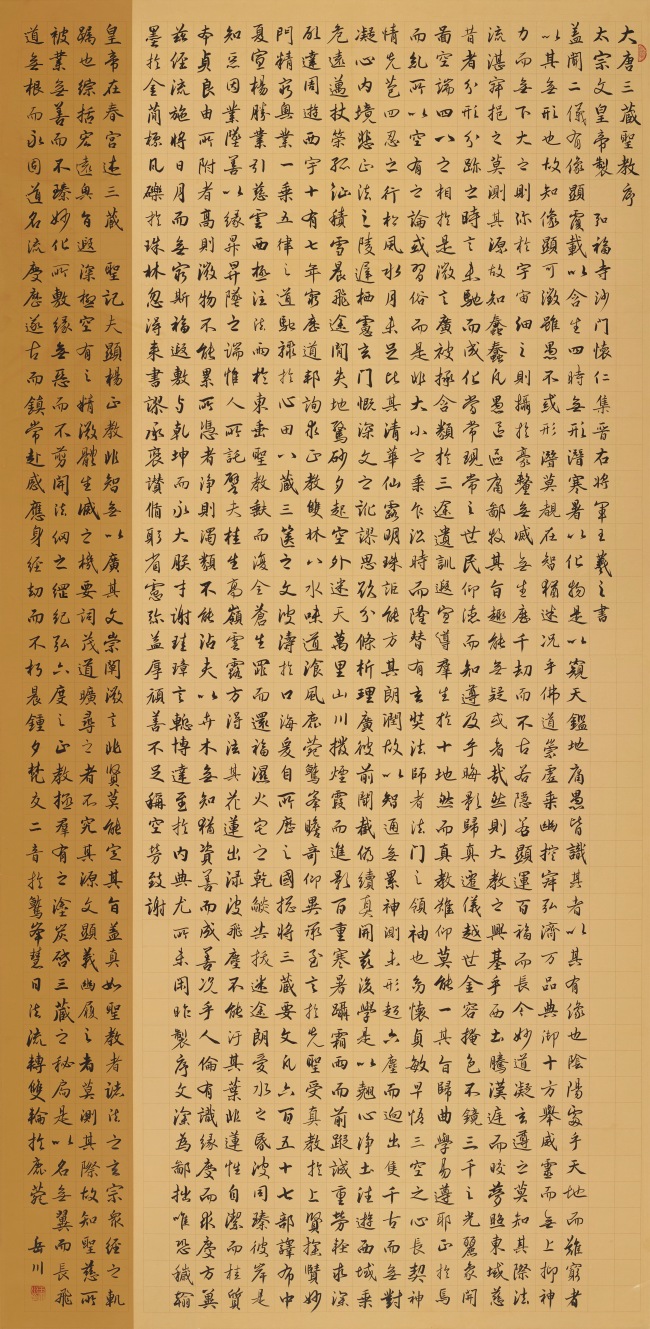 大唐三藏聖教序
太宗文皇帝製 弘福寺沙门懷仁集晉右將軍王羲之書
蓋聞二儀有像顯覆載以含生四時無形潛寒暑以化物是以窺天鑑地庸愚皆識其者以其有緣也陰陽處乎天地而難窮者
以其無形也故知像顯可徵雖愚不惑形潛莫覩在智猶迷況乎佛道崇虛乘幽控寂弘濟万品典御十方舉威靈而無上抑神
力而無下大之則弥於宇宙細之則攝於豪釐無滅無生歷千劫而不古若隱若顯運百福而長今妙道凝玄遵之莫知其際法
流湛寂挹之莫測其源故知蠢蠢凡愚區區庸鄙投其旨趣能無疑或者哉然則大教之興基乎西土騰漢庭而皎夢照東域慈
昔者分形分跡之時言未馳而成化當常現常之世民仰德而知遵及乎晦影歸真遷儀越世金容掩色不鏡三千之光麗象開
圖空端四八之相於是微言廣被拯含類於三途遺訓遐宣導群生於十地然而真教難仰莫能一其旨歸曲學易遵耶正於焉
而亂所以空有之論或習俗而是非大小之乘乍沿時而隆替有玄奘法師者法門之領袖也幼懷貞敏早悟三空之心長契神
情先苞四忍之行松風水月未足比其清華仙露明珠詎能方其朗潤故以智通無累神測未形超六塵而迥出隻千古而無對
凝心內境悲正法之陵遲栖慮玄門慨深文之訛謬思欲分條析理廣彼前聞截偽續真開茲後學是以翹心淨土法遊西域乘
危遠邁杖策孤征積雪晨飛途閒失地驚砂夕起空外迷天萬里山川撥煙霞而進影百重寒暑躡霜雨而前蹤誠重勞輕求深
願達周遊西宇十有七年窮歷道邦詢求正教雙林八水味道飡風鹿菀鷲峯瞻奇仰異承至言於先聖受真教於上賢探賾妙
門精窮奧業一乘五律之道馳驟於心田八藏三篋之文波濤於口海爰自所歷之國揔將三藏要文凡六百五十七部譯布中
夏宣楊勝業引慈雲西極注法雨於東垂聖教缺而復全蒼生罪而還福濕火宅之乾燄共拔迷途朗愛水之昏波同臻彼岸是
知惡因業墜善以緣昇昇墜之端惟人所託譬夫桂生高嶺雲露方得泫其花蓮出淥波飛塵不能汙其葉非蓮性自潔而桂質
本貞良由所附者高則微物不能累所憑者淨則濁類不能沾夫以卉木無知猶資善而成善況乎人倫有識緣慶而求慶方冀
茲經流施將日月而無窮斯福遐敷与乾坤而永大朕才謝珪璋言慙博達至於內典尤所未閑昨製序文深為鄙拙唯恐穢翰
墨於金簡標瓦礫於珠林忽得來書謬承褒讚循躬省慮弥益厚顏善不足稱空勞致謝
皇帝在春宮述三藏 聖記夫顯楊正教非智無以廣其文崇闡微言非賢莫能定其旨蓋真如聖教者諸法之玄宗眾經之軌
躅也綜括宏遠奧旨遐深極空有之精微體生滅之機要詞茂道曠尋之者不究其源文顯義幽履之者莫測其際故知聖慈所
被業無善而不臻妙化所敷緣無惡而不剪開法網之綱紀弘六度之正教拯群有之塗炭啓三藏之秘扃是以名無翼而長飛
道無根而永固道名流慶歷遂古而鎮常赴感應身經劫而不朽晨鐘夕梵交二音於鷲峯慧日法流轉雙輪於鹿菀 岳川